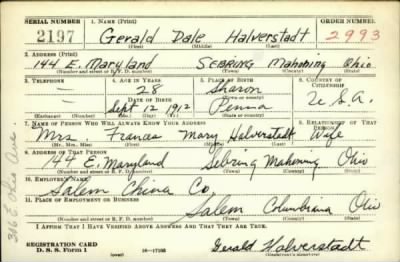 SERIAL NUMBER 1. NAME (Print) ORDER NUMBER
2197 Gerald Dale Halverstadt 2993
(First) (Middle) (Last)
2. ADDRESS (Print)
144 E. Maryland Sebring Mahoning Ohio
(Number and street or R. F. D. number) (Town) (County) (State)
3. TELEPHONE 4. AGE IN YEARS 5. PLACE OF BIRTH 6. COUNTRY OF CITIZENSHIP
— 28 Sharon
DATE OF BIRTH (Town or county)
— Sept 12 1912 Penna U.S.A.
(Exchange) (Number) (Mo.) (Day) (Yr.) (State or country)
7. NAME OF PERSON WHO WILL ALWAYS KNOW YOUR ADDRESS 8. RELATIONSHIP OF THAT PERSON
Mrs Frances Mary Halverstadt Wife
(Mr., Mrs., Miss) (First) (Middle) (Last)
9. ADDRESS OF THAT PERSON
144 E. Maryland Sebring Mahoning Ohio
(Number and street or R. F. D. number) (Town) (County) (State)
10. EMPLOYER'S NAME
Salem China Co.
11. PLACE OF EMPLOYMENT OR BUSINESS
Salem Columbiana Ohio
(Number and street or R. F. D. number) (Town) (County) (State)
I AFFIRM THAT I HAVE VERIFIED ABOVE ANSWERS AND THAT THEY ARE TRUE.
REGISTRATION CARD
D. S. S. Form 1 (over) Gerald Halverstadt
(Registrant's signature)
E Ohio Ave